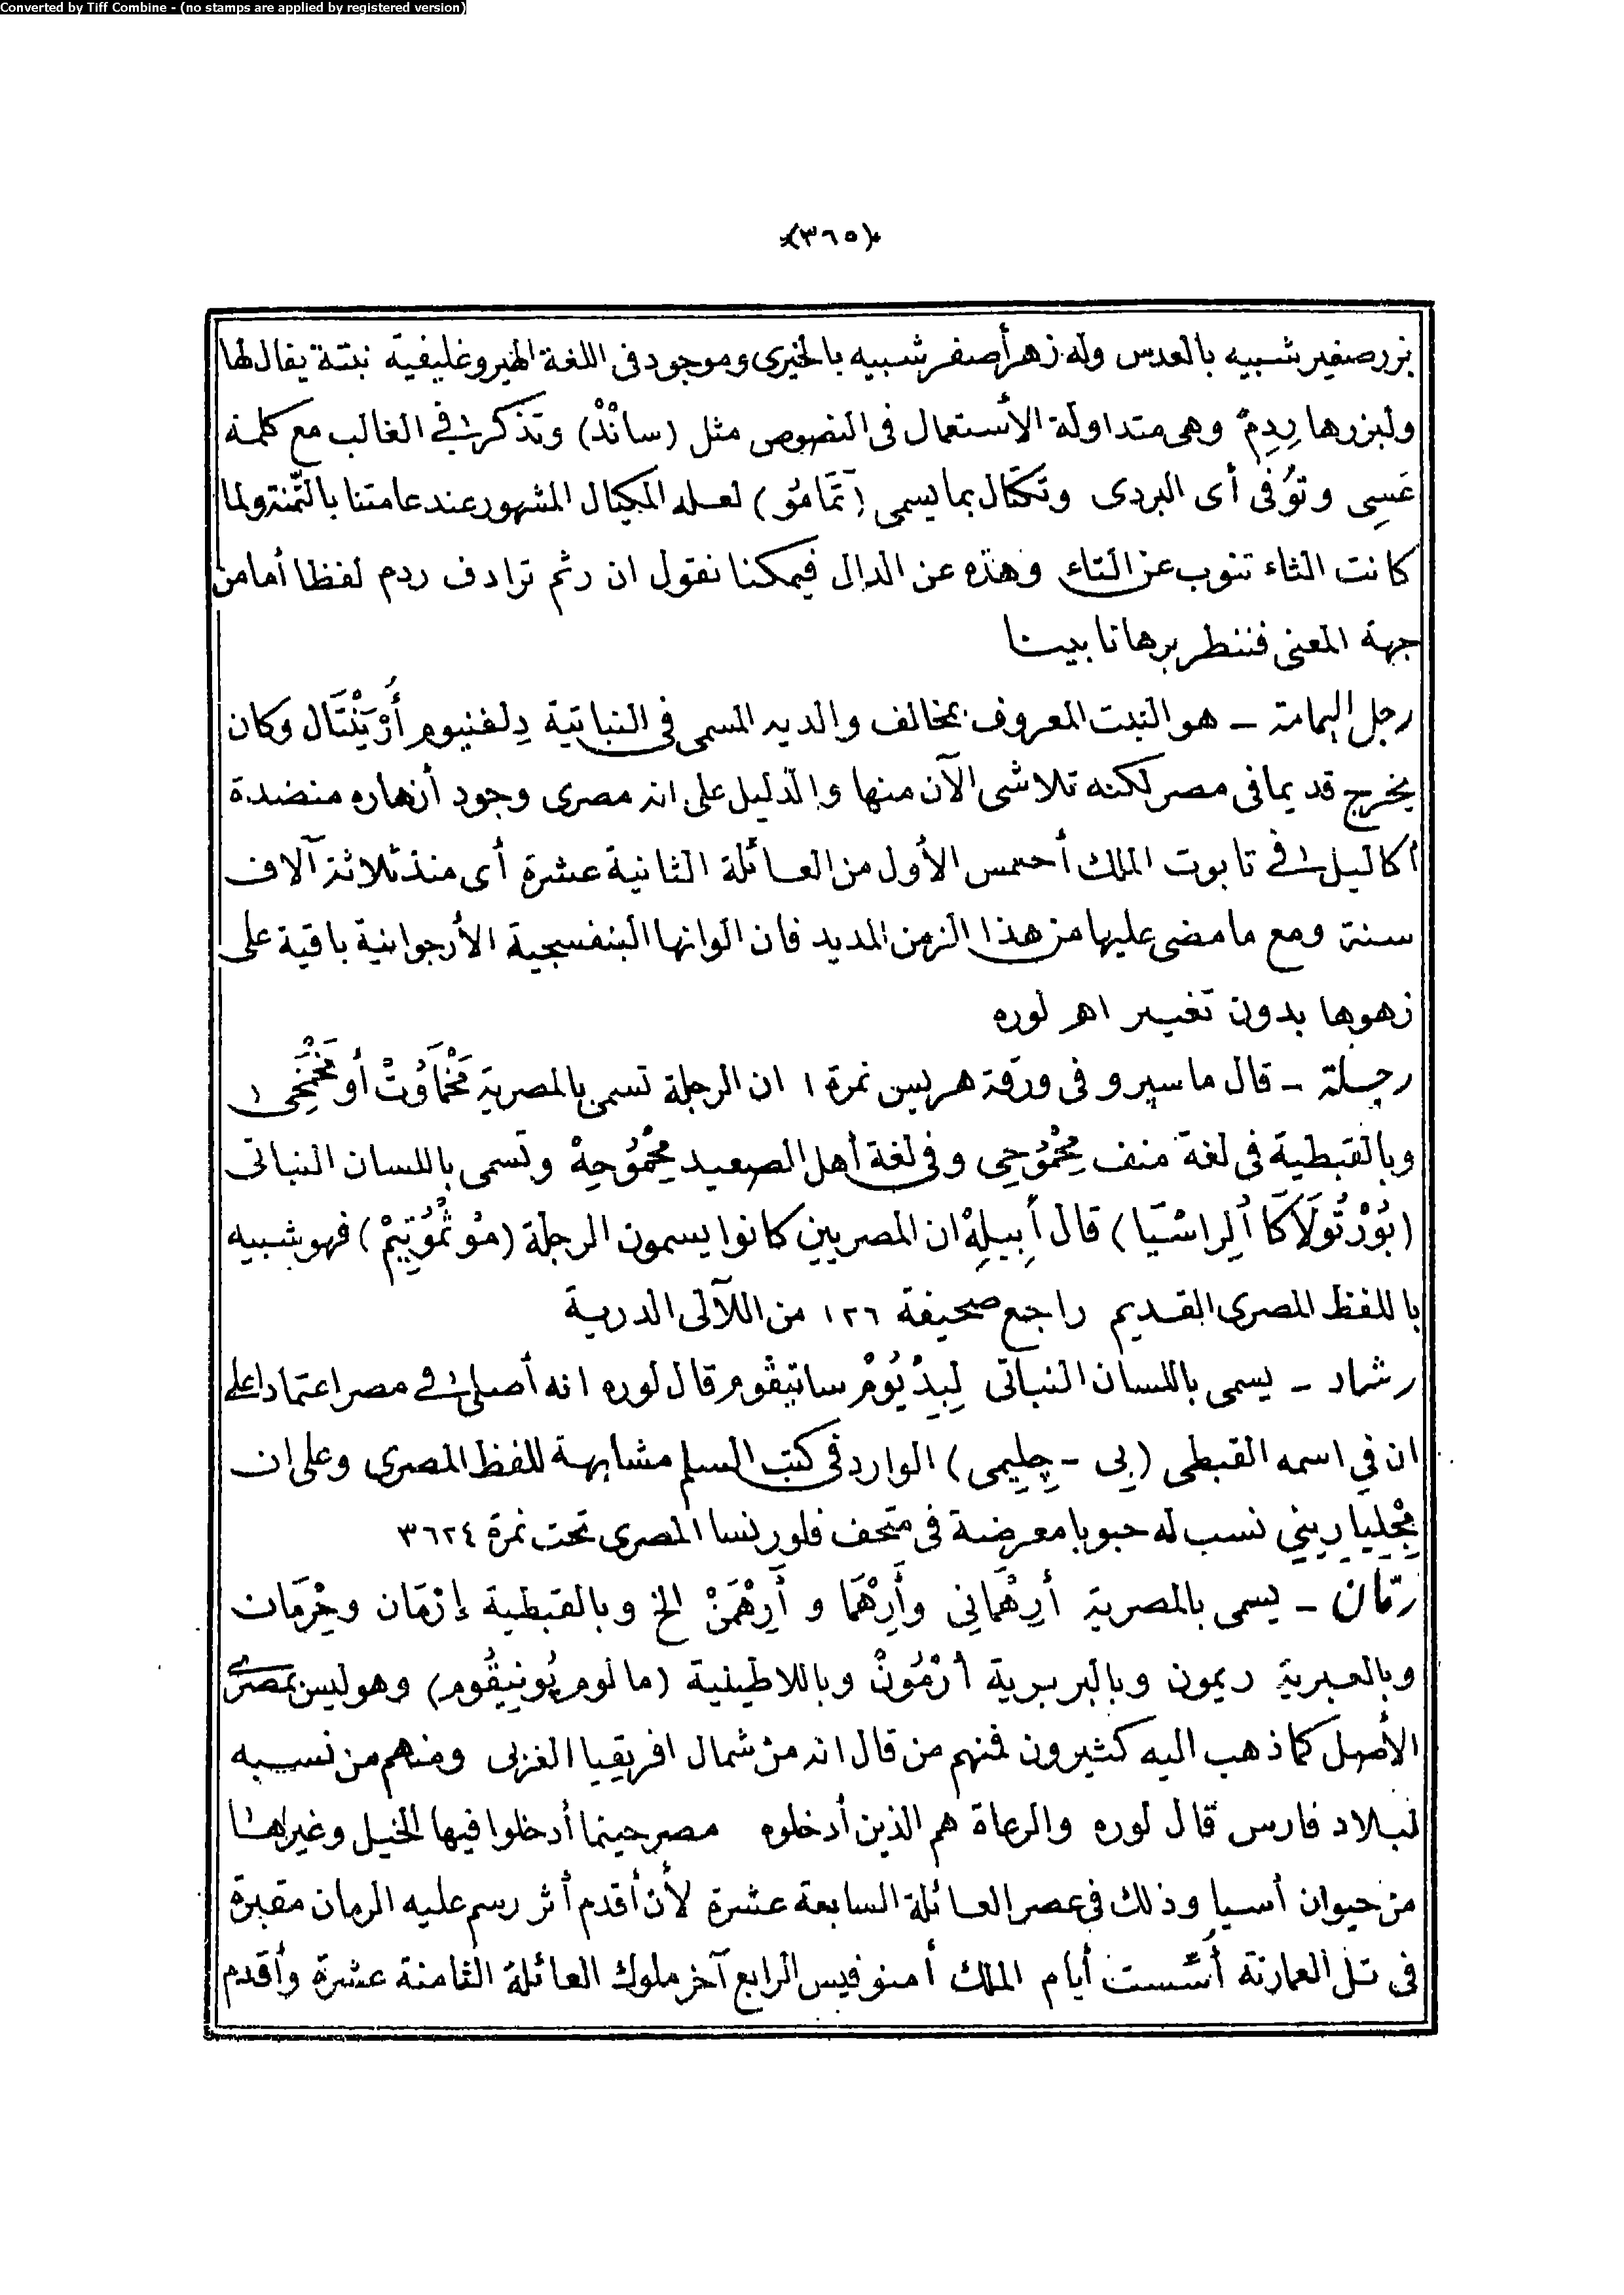 Converted by Tiff Combine - (no stamps are applied by registered version)
﴿٣٦٥﴾
بزر صغير شبيه بالعدس وله زهر أصفر شبيه بالخيرى وموجود فى اللغة الهيروغليفية نبتة يقال لها
ولبزرها رِدِمْ وهى متداولة الأستعمال فى النصوص مثل (سانْذْ) وتذكر فى الغالب مع كلمة
عَسِى وتوُفى أى البردى وتكتال بما يسمى (تَمَامُو) لعله المكيال المشهور عند عامتنا بالثمنة ولما
كانت الثاء تنوب عن التاء وهذه عن الدال فيمكننا نقول ان رثم ترادف ردم لفظا أما من
جهة المعنى فننظر برهانا بينا
رجل اليمامة ـ هو النبت المعروف بمخالف والديه المسمى فى النباتية دِلفنيوم أُوْرْيَنْتَال وكان
يخرج قديما فى مصر لكنه تلاشى الآن منها والدليل على انه مصرى وجود أزهاره منضدة
أكاليل فى تابوت الملك أحمس الأول من العائلة الثانية عشرة أى منذ ثلاثة آلاف
سنة ومع ما مضى عليها من هذا الزمن المديد فان الوانها البنفسجية الأرجوانية باقية على
زهوها بدون تغيير اهـ لوره
رجلة ـ قال ماسپرو فى ورقة هريس نمرة ١ ان الرجلة تسمى بالمصرية مَخْمَاوُتْ أو مَخْمَخَى
وبالقبطية فى لغة منف مِحْمُوحِى وفى لغة أهل الصعيد مِحْمُوحِهْ وتسمى باللسان النباتى
(بُوْرْتُولَاكَا أُلِراسْيَا) قال أَبِيلِهْ ان المصريين كانوا يسمون الرجلة (مُوْثْمُوتِيمْ) فهو شبيه
باللفظ المصرى القديم راجع صحيفة ١٢٦ من اللآلى الدرية
رشاد ـ يسمى باللسان النباتى لِبِيدْيُومْ ساتيڤوم قال لوره انه أصلى فى مصر اعتمادا على
ان فى اسمه القبطى (بِى ـ چِلِيمى) الوارد فى كتب السلم مشابهة للفظ المصرى وعلى ان
مِجْلِيارِينِي نسب له حبوبا معرضة فى متحف فلورنسا المصرى تحت نمرة ٣٦٢٤
رمّان ـ يسمى بالمصرية أَرِهْمَانِي وأَرِهْمَا و أَرِهْمَنْ الخ وبالقبطية إزمَان وخِرْمَان
وبالعبرية ريمون وبالبربرية أَرْمُونْ وباللاطينية (مالوم پُونِيقُوم) وهو ليس بمصرى
الأصل كما ذهب اليه كثيرون فمنهم من قال انه من شمال افريقيا الغربى ومنهم من نسبه
لبلاد فارس قال لوره والرعاة هم الذين أدخلوه مصر حينما أدخلوا فيها الخيل وغيرها
من حيوان أسيا وذلك فى عصر العائلة السابعة عشرة لأن أقدم أثر رسم عليه الرمان مقبرة
فى تل العمارنة أُسّست أيام الملك أمنوفيس الرابع آخر ملوك العائلة الثامنة عشرة وأقدم